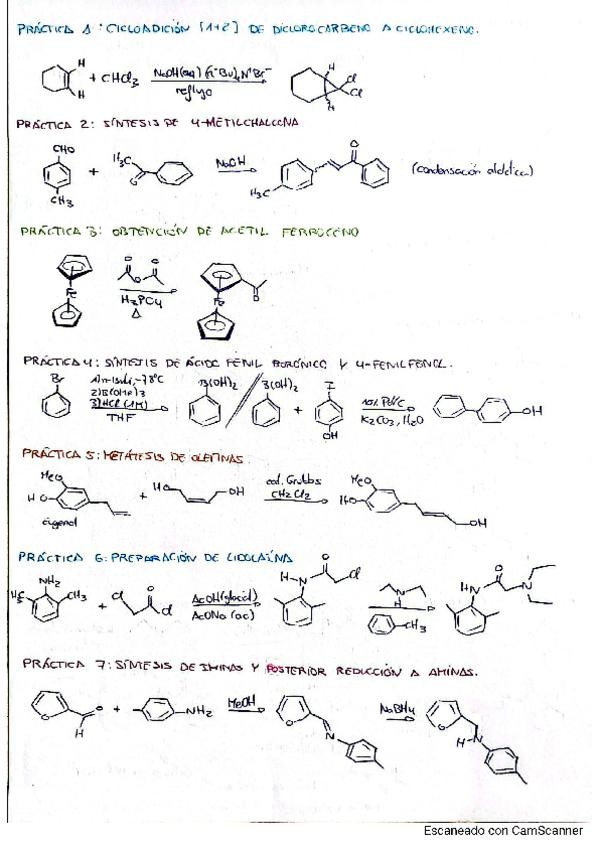 PRÁCTICA 1: CICLOADICIÓN [1+2] DE DICLOROCARBENO A CICLOHEXENO.
H
H
+ CHCl3
NaOH(aq) (n-Bu)4N+Br-
reflujo
H
Cl
Cl
H
PRÁCTICA 2: SÍNTESIS DE 4-METILCHALCONA
CHO
CH3
+
H3C
O
NaOH
H3C
O
(condensación aldólica)
PRÁCTICA 3: OBTENCIÓN DE ACETIL FERROCENO
Fe
O O
O
H3PO4
Δ
Fe
O
PRÁCTICA 4: SÍNTESIS DE ÁCIDO FENIL BORÓNICO Y 4-FENILFENOL.
Br
-78ºC
2) B(OMe)3
3) HCl (1M)
THF
B(OH)2
B(OH)2
+
I
OH
Pd/C
K2CO3, H2O
OH
PRÁCTICA 5: METÁTESIS DE OLEFINAS.
MeO
HO
eugenol
+
HO
OH
cat. Grubbs
CH2Cl2
MeO
HO
OH
PRÁCTICA 6: PREPARACIÓN DE LIDOCAÍNA
NH2
H3C
CH3
+
Cl
O
Cl
AcOH (glacial)
AcONa (ac)
H
N
O
Cl
N
H
CH3
HN
O
N
PRÁCTICA 7: SÍNTESIS DE IMINAS Y POSTERIOR REDUCCIÓN A AMINAS.
O
O
H
+
NH2
MeOH
O
N
NaBH4
O
H N
Escaneado con CamScanner